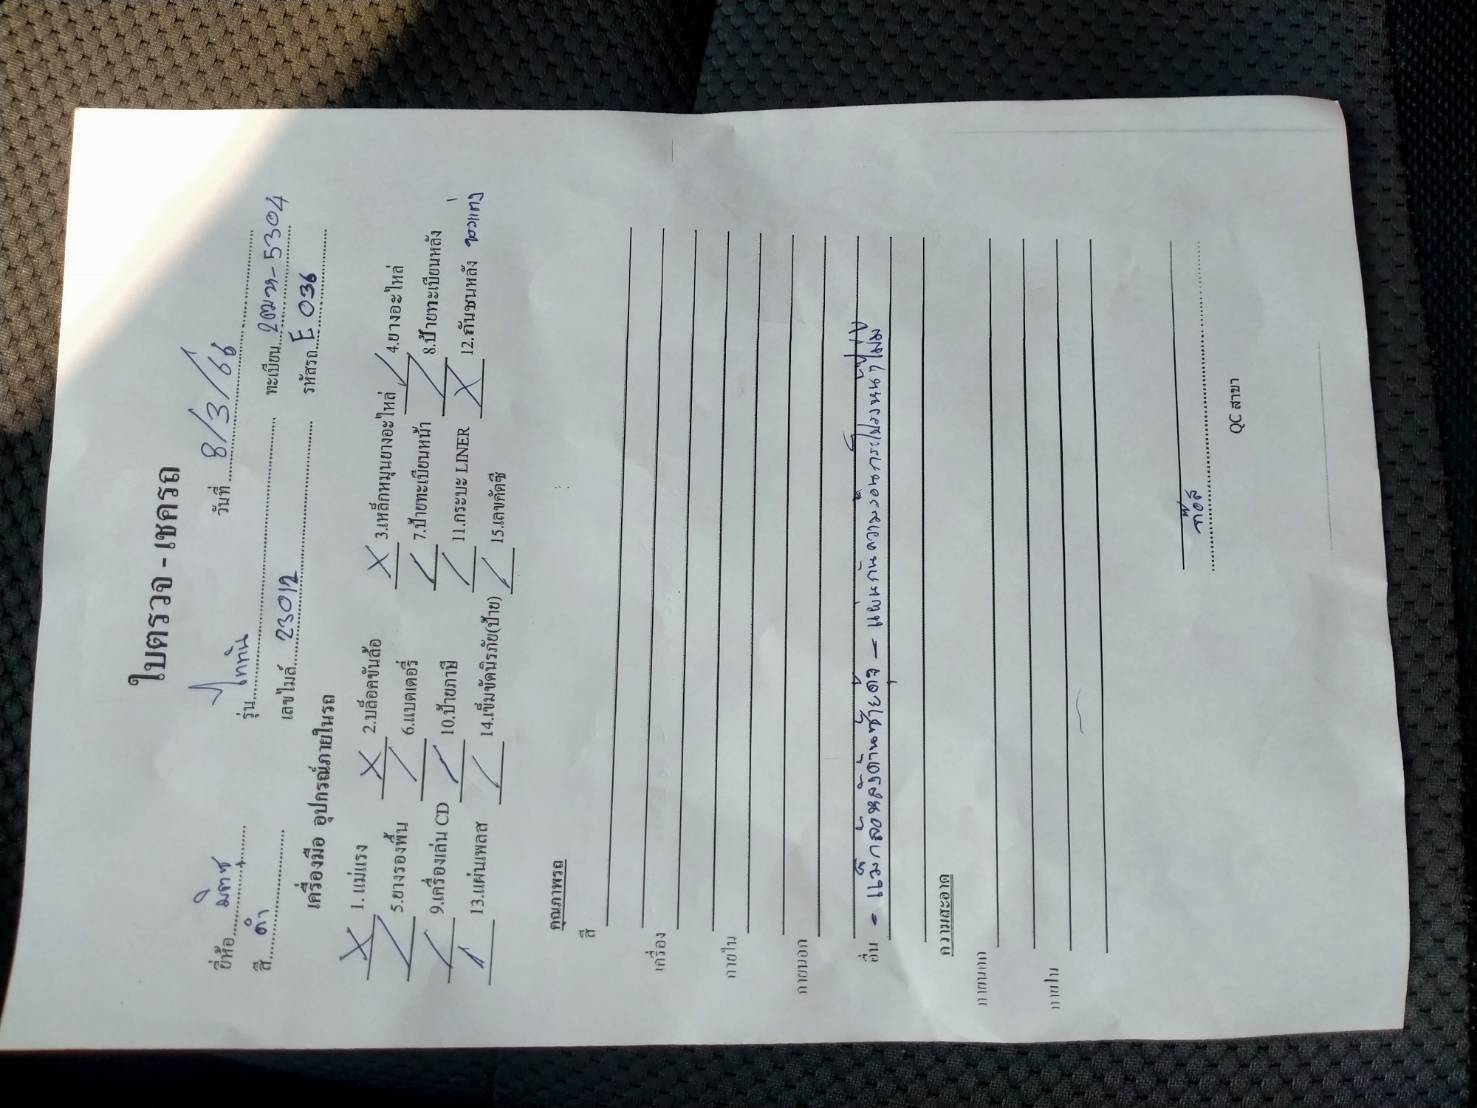 ใบตรวจ - เชครถ
วันที่ 8/3/66
ยี่ห้อ มิตซู รุ่น ไททัน ทะเบียน 2ฒห-5304
สี ดำ เลขไมล์ 23012 รหัสรถ E 036
เครื่องมือ อุปกรณ์ภายในรถ
X 1.แม่แรง X 2.บล็อคขันล้อ X 3.เหล็กหมุนยางอะไหล่ / 4.ยางอะไหล่
/ 5.ยางรองพื้น / 6.แบตเตอรี่ / 7.ป้ายทะเบียนหน้า / 8.ป้ายทะเบียนหลัง
/ 9.เครื่องเล่น CD / 10.ป้ายภาษี / 11.กระบะ LINER X 12.กันชนหลัง ขาวแต่ง
/ 13.แผ่นเพลส / 14.เข็มขัดนิรภัย(ป้าย) / 15.เลขคัตซี
คุณภาพรถ
สี
เครื่อง
ภายใน
ภายนอก
อื่น - แม็กล้อหลังด้านซ้ายดุ้ง - แผ่นกันความร้อนกระโปรงหน้าไม่มี
ความสะอาด
ภายนอก
ภายใน
ก๊อส
QC สาขา